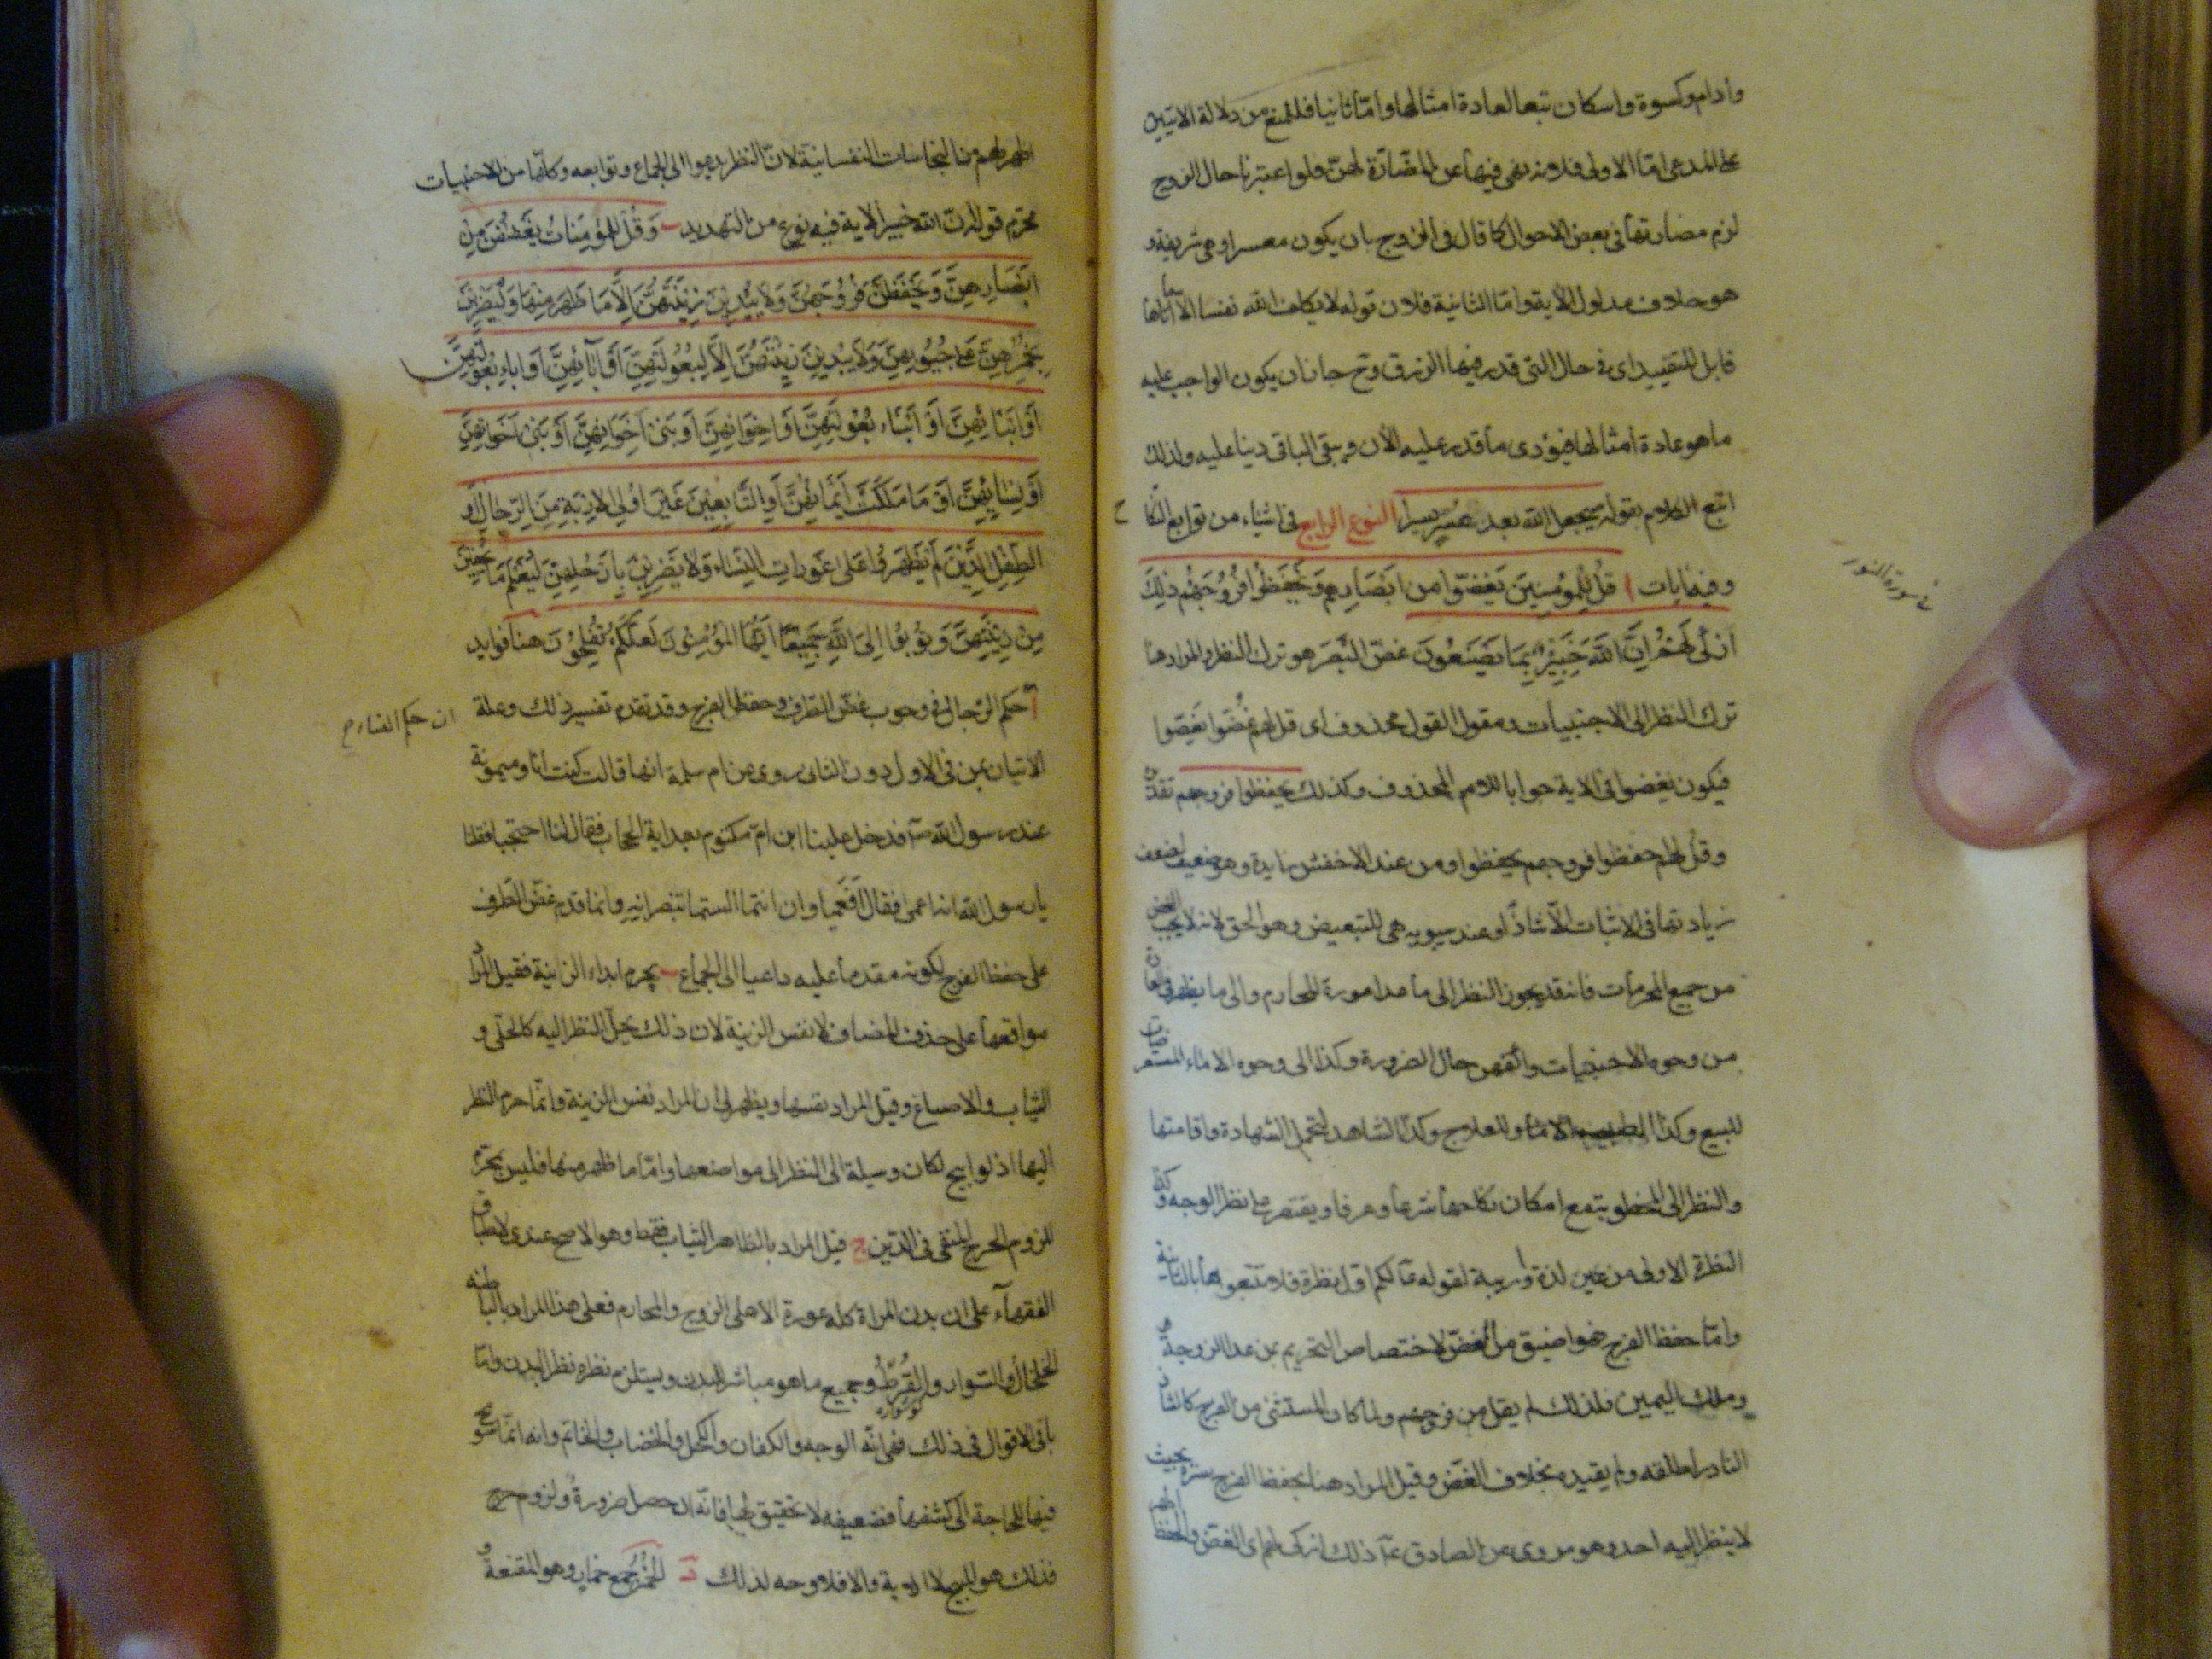 وادام وكسوة واسكان تبعا لعادة امثالها واما ثانيا فللمنع من دلالة الايتين
على المدعى اما الاولى فلانه نهى فيها عن المضارة لهن فلو اعتبرنا حال الزوج
لزم مضارتها في بعض الاحوال كما قال في الزوج بان يكون معسرا وهي شريفة و
هو خلاف مدلول الاية واما الثانية فلان قوله لا يكلف الله نفسا الا ما اتاها
قابل للتقييد اي في حال التي قدر فيها الرزق وح جاز ان يكون الواجب عليه
ما هو عادة امثالها فيؤدى ما قدر عليه الان ويبقى الباقى دينا عليه ولذلك
اتبع الكلام بقوله سيجعل الله بعد عسر يسرا النوع الرابع في اشياء من توابع النكا ح
وفيها ايات ا قُل لِلمُؤمِنِينَ يَغُضّوا مِن اَبصَارِهِم وَيَحفَظُوا فُرُوجَهُم ذلِكَ
في سورة النور
ازكى لَهُم اِنَّ اللهَ خَبِيرٌ بِمَا يَصنَعُونَ غض البصر هو ترك النظر والمراد هنا
ترك النظر الى الاجنبيات ومقول القول محذوف اى قل لهم غضوا يغضوا
فيكون يغضوا في الاية جوابا للامر المحذوف وكذلك يحفظوا فروجهم تقديره
وقل لهم احفظوا فروجهم يحفظوا ومن عند الاخفش زايدة وهو ضعيف لضعف
زيادتها في الاثبات الا شاذا وعند سيبويه هي للتبعيض وهو الحق لانه لا يجب الغض
من جميع المحرمات فانه قد يجوز النظر الى ما عدا عورة المحارم والى ما يظهر في العادة
من وجوه الاجنبيات واكفهن حال الضرورة وكذا الى وجوه الاماء المستعرضات
للبيع وكذا الطبيب للعلاج وكذا الشاهد لتحمل الشهادة واقامتها
والنظر الى المخطوبة مع امكان نكاحها شرعا وعرفا ويقتصر على نظر الوجه وكذا
النظرة الاولى من غير لذة او ريبة لقوله ع لكم اول نظرة فلا تتبعوها بالثانية
واما حفظ الفرج فهو اضيق من الغض لاختصاص التحريم بمن عدا الزوجة و
وملك اليمين فلذلك لم يقل من فروجهم ولما كان المستثنى من الفرج كالشاذ
النادر اطلقه ولم يقيده بخلاف الغض وقيل المراد هنا بحفظ الفرج ستره بحيث
لا ينظر اليه احد وهو مروى عن الصادق ع ذلك ازكى لهم اى الغض والحفظ اطهر
اطهر لهم من النجاسات النفسانية لان النظر يدعوا الى الجماع وتوابعه وكلها من الاجنبيات
محرم قوله ان الله خبير الاية فيه نوع من التهديد ب وَقُل لِلمُؤمِنَاتِ يَغضُضنَ مِن
اَبصَارِهِنَّ وَيَحفَظنَ فُرُوجَهُنَّ وَلَا يُبدِينَ زِينَتَهُنَّ اِلَّا مَا ظَهَرَ مِنهَا وَليَضرِبنَ
بِخُمُرِهِنَّ عَلى جُيُوبِهِنَّ وَلَا يُبدِينَ زِينَتَهُنَّ اِلَّا لِبُعُولَتِهِنَّ اَو اٰبَائِهِنَّ اَو اٰبَاءِ بُعُولَتِهِنَّ
اَو اَبنَائِهِنَّ اَو اَبنَاءِ بُعُولَتِهِنَّ اَو اِخوَانِهِنَّ اَو بَنِى اِخوَانِهِنَّ اَو بَنِى اَخَوَاتِهِنَّ
اَو نِسَائِهِنَّ اَو مَا مَلَكَت اَيمَانُهُنَّ اَوِ التَّابِعِينَ غَيرِ اُولِي الاِربَةِ مِنَ الرِّجَالِ اَوِ
الطِّفلِ الَّذِينَ لَم يَظهَرُوا عَلى عَورَاتِ النِّسَاءِ وَلَا يَضرِبنَ بِاَرجُلِهِنَّ لِيُعلَمَ مَا يُخفِينَ
مِن زِينَتِهِنَّ وَتُوبُوا اِلَى اللهِ جَمِيعًا اَيُّهَا المُؤمِنُونَ لَعَلَّكُم تُفلِحُونَ هنا فوايد
ا حكم الرجال في وجوب غض الطرف وحفظ الفرج وقد تقدم تفسير ذلك وعلة
ان حكم النساء ح
الاتيان بمن في الاول دون الثانى روى عن ام سلمة انها قالت كنت انا وميمونة
عند رسول الله ص فدخل علينا ابن ام مكتوم بعد اية الحجاب فقال لنا احتجبا فقلنا
يا رسول الله انه اعمى فقال افعميا وان انتما الستما تبصرانه وانما قدم غض الطرف
على حفظ الفرج لكونه مقدما عليه داعيا الى الجماع ب يحرم ابداء الزينة فقيل المراد
مواقعها على حذف المضاف لا نفس الزينة لان ذلك يحل النظر اليه كالحلى و
الثياب والاصباغ وقيل المراد نفسها ويظهر لى ان المراد نفس الزينة وانما حرم النظر
اليها اذ لو ابيح لكان وسيلة الى النظر الى مواضعها واما ما ظهر منها فليس بمحرم
للزوم الحرج المنفى في الدين ج قيل المراد بالظاهر الثياب فقط وهو الاصح عندى لاطباق
الفقهاء على ان بدن المراة كله عورة الا على الزوج والمحارم فعلى هذا المراد بالباطنة
الخلخال والسوار والقُرط وجميع ما هو مباشر للبدن ويستلزم نظره نظر البدن واما
باقى الاقوال في ذلك فهى انه الوجه والكفان والكحل والخضاب والخاتم وانه انما سومح
فيها للحاجة الى كشفها فضعيفة لا تحقيق لها فانه ان حصل ضرورة ولزوم حرج
فذلك هو المبيح والا فلا وجه لذلك د الخُمُر جمع خمار وهو المقنعة و